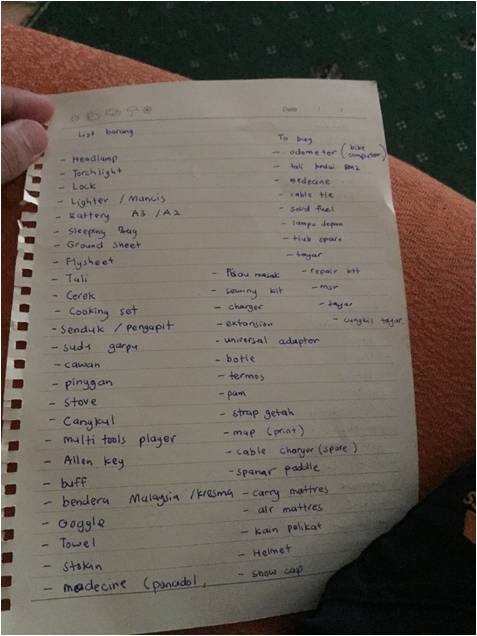 Date / /
List barang
- Headlamp
- Torchlight
- Lock
- Lighter / Mancis
- Battery A3 / A2
- Sleeping Bag
- Ground sheet
- Flysheet
- Tali
- Cerek
- Cooking set
- senduk / pengapit
- sudu garpu
- cawan
- pinggan
- stove
- Cangkul
- multi tools player
- Allen key
- buff
- bendera Malaysia / kresma
- Goggle
- Towel
- stokin
- medecine (panadol,
- Pisau masak
- sewing kit
- charger
- extansion
- universal adapter
- botle
- termos
- pam
- strap getah
- map (print)
- cable charger (spare)
- spanar paddle
- carry mattres
- air mattres
- kain pelikat
- Helmet
- snow cap
To buy
- odometer (bike computer)
- tali
- medecine
- cable tie
- solid fuel
- lampu depan
- tiub spare
- tayar
- repair kit
- msr
- tayar
- cungkil tayar